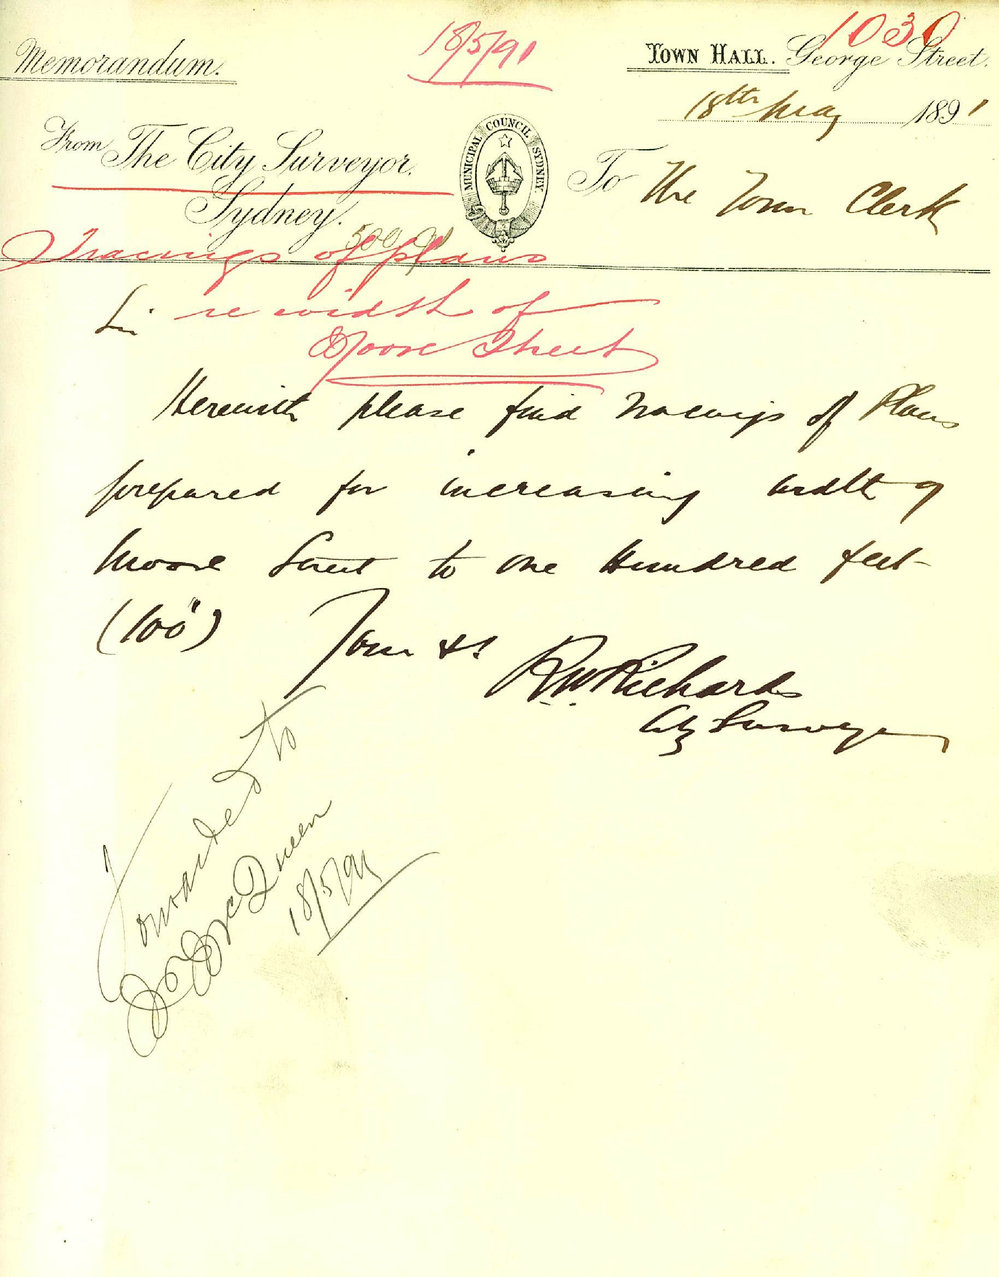 1030
Memorandum.
18/5/91
TOWN HALL. George Street.
18th May 1891
From The City Surveyor.
Sydney.
MUNICIPAL COUNCIL SYDNEY
To The Town Clerk
Tracings of plans
re width of
Moore Street
Sir
Herewith please find Tracings of Plans
prepared for increasing width of
Moore Street to one Hundred feet
(100')
Your &c
R.W. Richards
City Surveyor
Forwarded to
McQueen
18/5/91